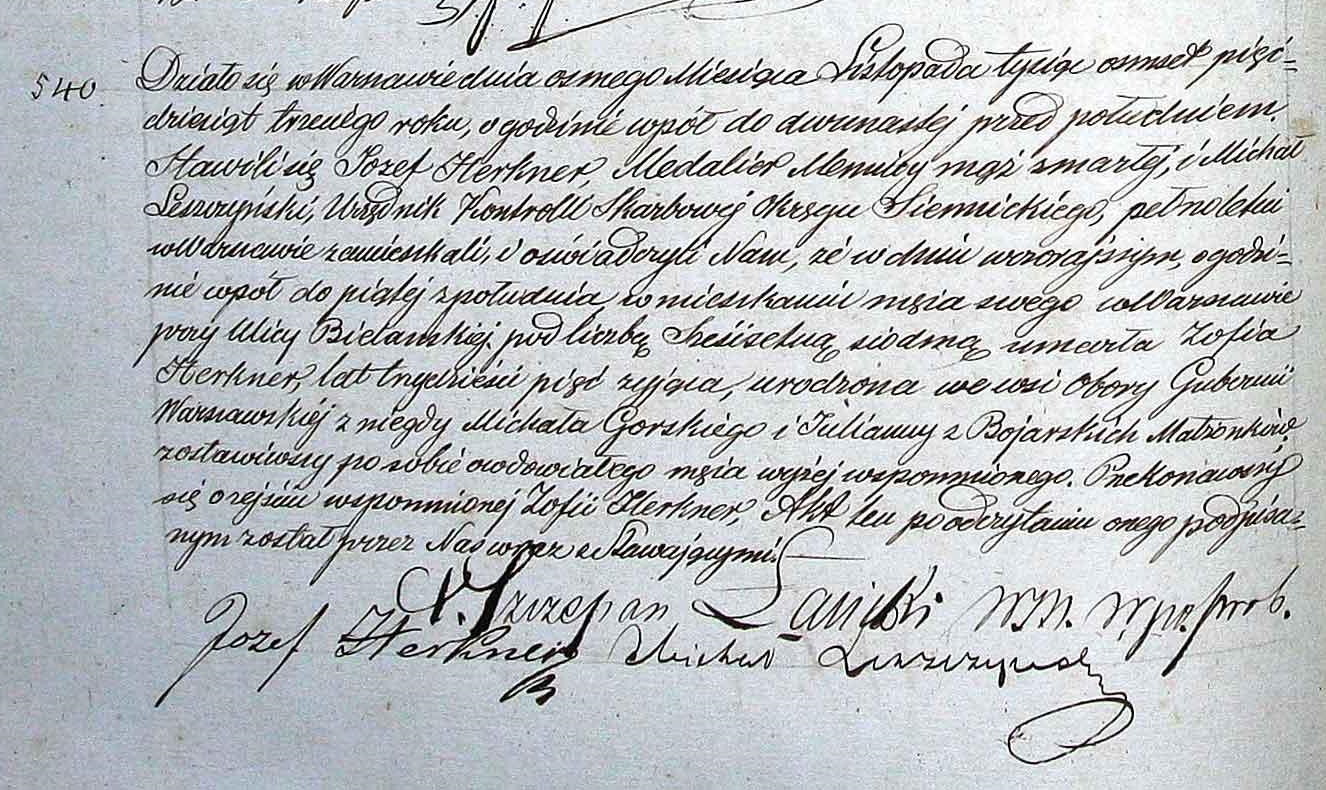 540. Działo się w Warszawie dnia osmego Miesiąca Listopada tysiąc osmset pięć=
dziesiąt trzeciego roku, o godzinie wpół do dwunastej przed południem.
Stawili się Jozef Herkner, Medalier Mennicy mąż zmarłej, i Michał
Leszczyński, Urzędnik Kontrolli Skarbowej Okręgu Siennickiego, pełnoletni
w Warszawie zamieszkali, i oświadczyli Nam, że w dniu wczorajszym, o godzi=
nie wpół do piątej z południa w mieszkaniu męża swego w Warszawie
przy Ulicy Bielanskiej pod liczbą sześćsetną siodmą umarła Zofia
Herkner, lat trzydzieści pięć żyjąca, urodzona we wsi Obory Gubernii
Warszawskiej z niegdy Michała Gorskiego i Julianny z Bojarskich Małżonków
zostawiwszy po sobie owdowiałego męża wyżej wspomnionego. Przekonawszy
się o zejściu wspomnionej Zofii Herkner, Akt ten po odczytaniu onego podpisa=
nym został przez Nas wraz z Stawającymi.
X. Szczepan
Jozef Herkner Michał Leszczyński